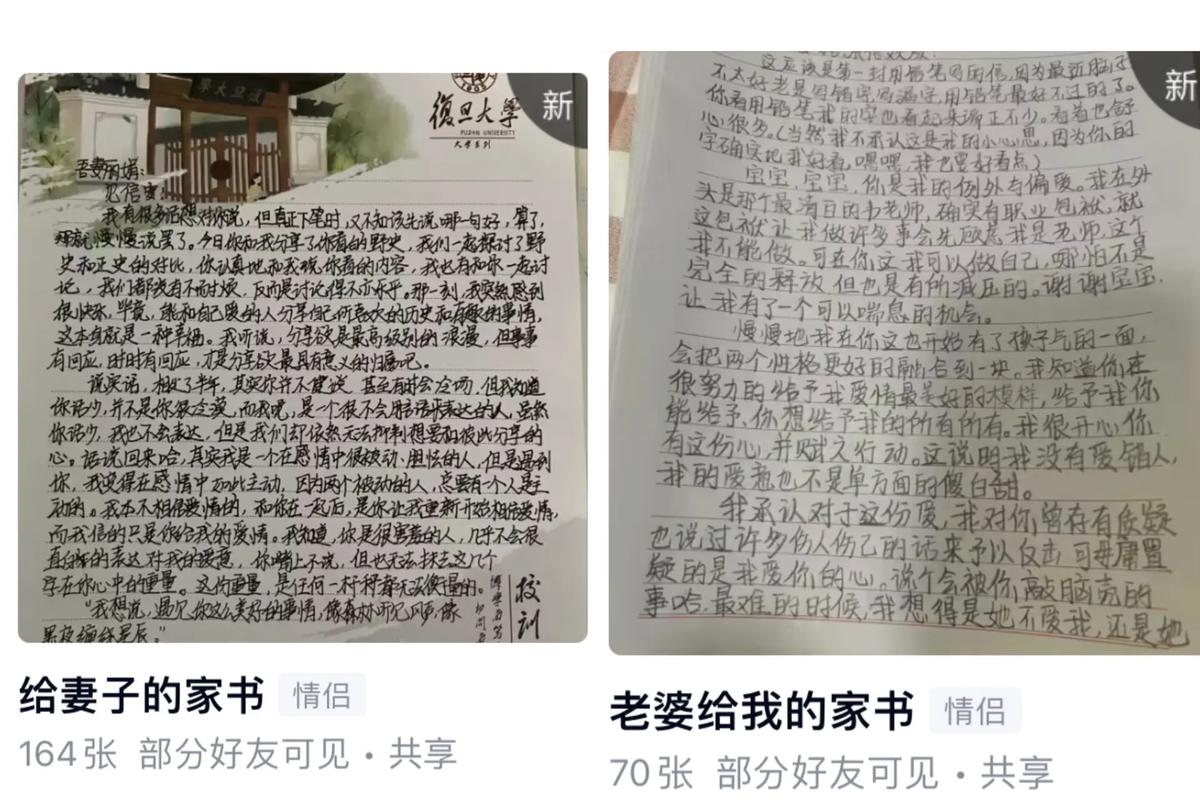 學大旦復
1905
復旦大學
FUDAN UNIVERSITY
大学系列
新
吾妻丽娟:
见信安。
我有很多话想对你说，但真正下笔时，又不知该先说哪一句好，算了，
那就慢慢说罢了。今日你和我分享了你看的野史，我们一起探讨了野
史和正史的对比，你认真地和我说你看的内容，我也有和你一起讨
论，我们都没有不耐烦，反而是讨论得不亦乐乎。那一刻，我突然感到
很快乐，毕竟，能和自己爱的人分享自己所喜欢的历史和有趣的事情，
这本身就是一种幸福。我听说，分享欲是最高级别的浪漫，但事事
有回应，时时有回应，才是分享欲最具有意义的归属吧。
说实话，相处了半年，其实你并不健谈，甚至有时会冷场，但我知道
你话少，并不是你很冷漠，而我呢，是一个很不会用话语表达的人，虽然
你话少，我也不会表达，但是我们却依然无法抑制想要和彼此分享的
心。话说回来哈，其实我是一个在感情中很被动、胆怯的人，但是遇到
你，我变得在感情中如此主动，因为两个被动的人，总要有一个人是主
动的。我本不相信爱情的，和你在一起后，是你让我重新开始相信爱情，
而我信的只是你给我的爱情。我知道，你是很害羞的人，几乎不会很
直白的表达对我的爱意，你嘴上不说，但也无法抹去这几个
字在你心中的重量。这份重量，是任何一杆秤都无法衡量的。
“我想说，遇见你这么美好的事情，像森林听见风声，像
黑夜缠绕星辰。”
校训
给妻子的家书 情侣
164张 部分好友可见·共享
这应该是第一封用铅笔写的信，因为最近脑子
不太好老是写错字写漏字，用铅笔最好不过的了。
你看用铅笔我的字也看起来端正不少。看着也舒
心很多。(当然我不承认这是我的小心思，因为你的
字确实比我好看，嘿嘿，我也要好看点)
宝宝，宝宝，你是我的例外与偏爱。我在外
头是那个最清白的书老师，确实有职业包袱，就
这包袱让我做许多事会先顾忌我是老师，这个
我不能做。可在你这我可以做自己，哪怕不是
完全的释放，但也是有所减压的。谢谢宝宝，
让我有了一个可以喘息的机会。
慢慢地我在你这也开始有了孩子气的一面，
会把两个性格更好的融合到一块。我知道你在
很努力的给予我爱情最美好的模样，给予我你
能给予，你想给予我的所有所有。我很开心，你
有这份心，并赋之行动。这说明我没有爱错人，
我的爱意也不是单方面的傻白甜。
我承认对于这份爱，我对你曾存有质疑
也说过许多伤人伤己的话来予以反击，可毋庸置
疑的是我爱你的心。说个会被你敲脑壳的
事哈，最难的时候，我想得是她不爱我，还是她
新
老婆给我的家书 情侣
70张 部分好友可见·共享